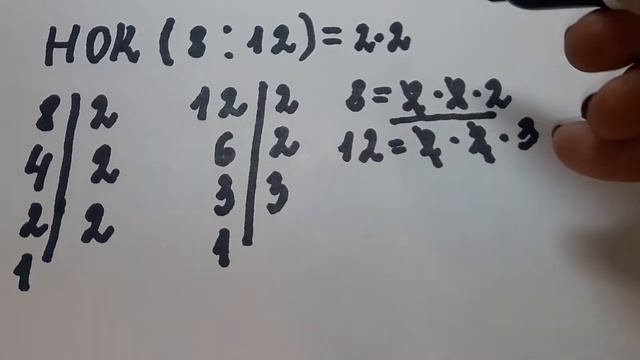 НОК (8 : 12) = 2·2
8 | 2
4 | 2
2 | 2
1
12 | 2
6 | 2
3 | 3
1
8 = 2·2·2
12 = 2·2·3